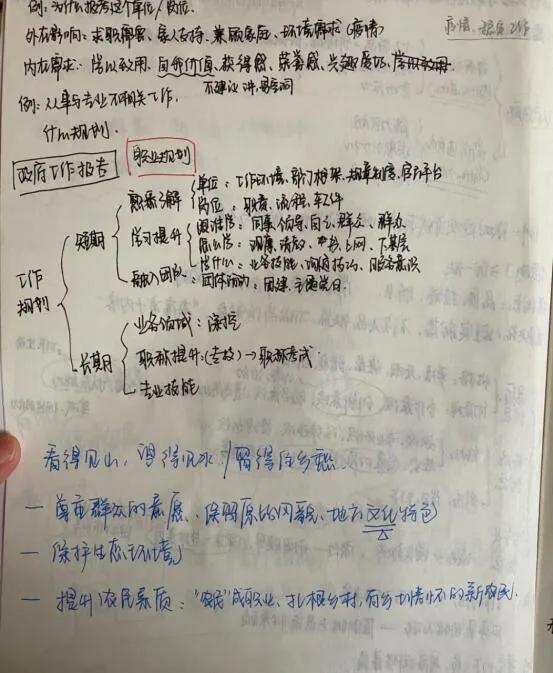 例:为什么报考这个单位/岗位.
外在影响:求职需要、家人支持、兼顾家庭、环境需求(疫情)
疫情、稳定工作
内在需求:学以致用、自我价值、获得感、荣誉感、兴趣爱好、学以致用.
不建议讲,易追问
例:从事与专业不相关工作,
什么规划.
政府工作报告
职业规划
工作规划
短期
熟悉了解
单位:工作环境、部门框架、规章制度、官方平台
岗位:职责、流程、软件
学习提升
跟谁学:同事、领导、自己、群众
怎么学:观察、请教、上网、下基层
学什么:业务技能、沟通技巧、服务意识
融入团队:团体活动:团建、主题党日.
长期
业务领域:深挖
职称提升:(专技)→职称考试
专业技能
看得见山,望得见水,留得住乡愁.
— 尊重群众的意愿、保留原始风貌、地方文化特色
— 保护生态环境
— 提升农民素质:"农民"成职业、扎根乡村,有乡村情怀的新农民.